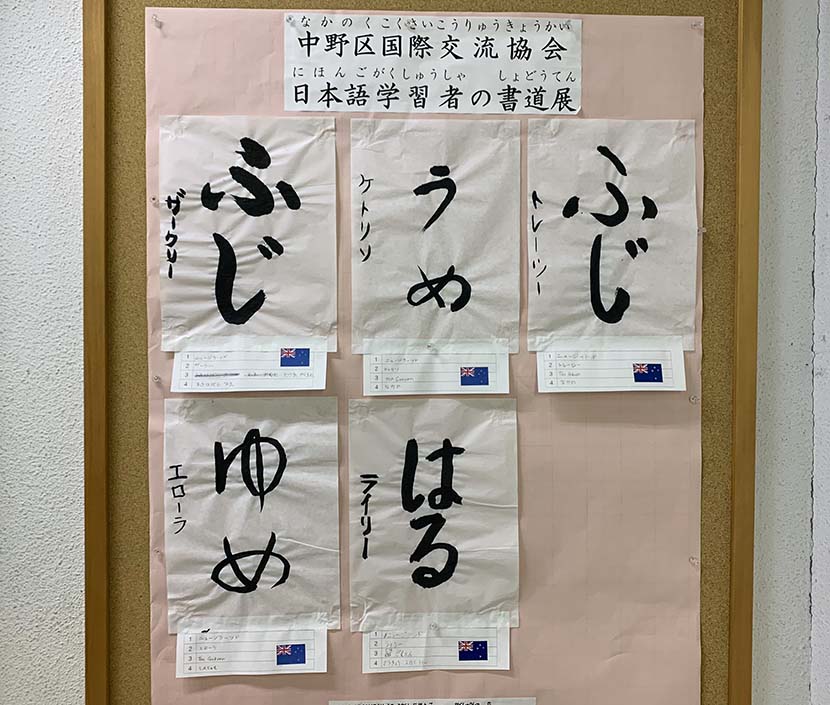 なかのくこくさいこうりゅうきょうかい
中野区国際交流協会
にほんごがくしゅうしゃ　しょどうてん
日本語学習者の書道展
ふじ
ザークリー
うめ
ケトリン
ふじ
トレーシー
1 ニュージーランド
2 ザークリー
3
4
1 ニュージーランド
2 ケトリン
3 The Garden
4
1 ニュージーランド
2 トレーシー
3
4
ゆめ
エローラ
はる
ライリー
1 ニュージーランド
2 エローラ
3 The Garden
4
1 ニュージーランド
2 ライリー
3
4